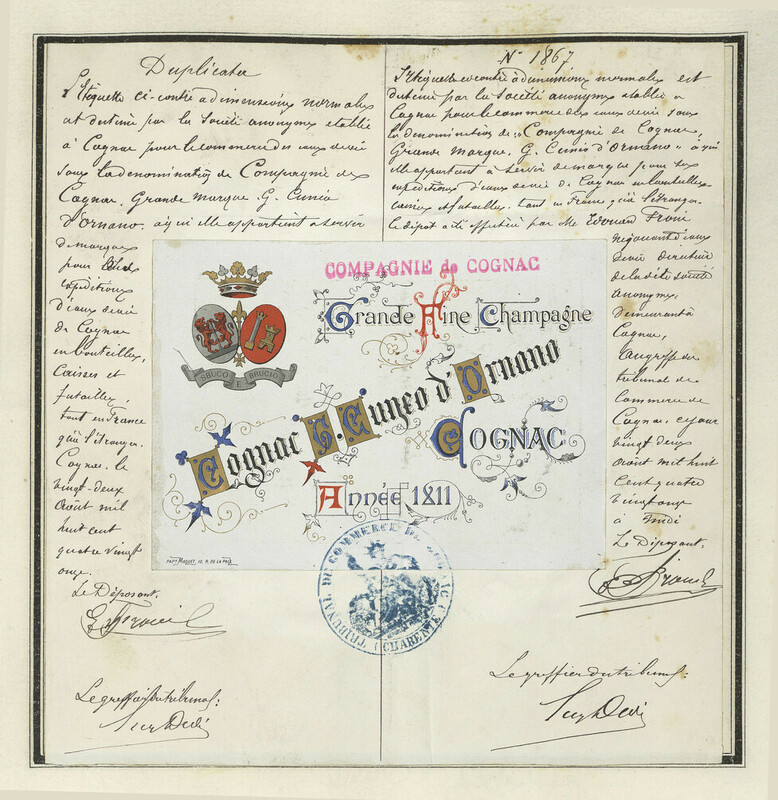 Duplicata
L'étiquette ci-contre a dimensions normales
est destinée par la Société anonyme établie
à Cognac pour le commerce des eaux devie
sous la dénomination de Compagnie de
Cognac, Grande Marque, G. Cunéo
d'Ornano, à qui elle appartient à servir
de marque
pour
expéditions
d'eaux devie
de Cognac
en bouteilles,
Caisses et
futailles,
tant en France
qu'à l'étranger.
Cognac, le
vingt-deux
Août mil
huit cent
quatre vingt
onze.
Le Déposant,
Le greffier du tribunal:
N° 1867
L'étiquette ci contre à dimensions normales est
destinée par la Société anonyme établie à
Cognac pour le commerce des eaux devie sous
la dénomination de "Compagnie de Cognac,
Grande Marque, G. Cunéo d'Ornano" à qui
elle appartient à servir de marque pour ses
expéditions d'eaux devie de Cognac en bouteilles,
caisses et futailles, tant en France qu'à l'étranger.
Le dépôt a été effectué par Mr Edouard
négociant d'eaux
devie directeur
de la dite société
Anonyme,
demeurant à
Cognac,
au greffe du
tribunal de
Commerce de
Cognac, ce jour
vingt deux
Août mil huit
cent quatre
vingt onze
à midi
Le Déposant,
Le greffier du tribunal:
COMPAGNIE de COGNAC
Grande Fine Champagne
SBUCO E BRUCIO
Cognac G. Cuneo d'Ornano
COGNAC
Année 1811
PAPie MAQUET, 10, R. DE LA PAIX
TRIBUNAL DE COMMERCE DE COGNAC (CHARENTE)